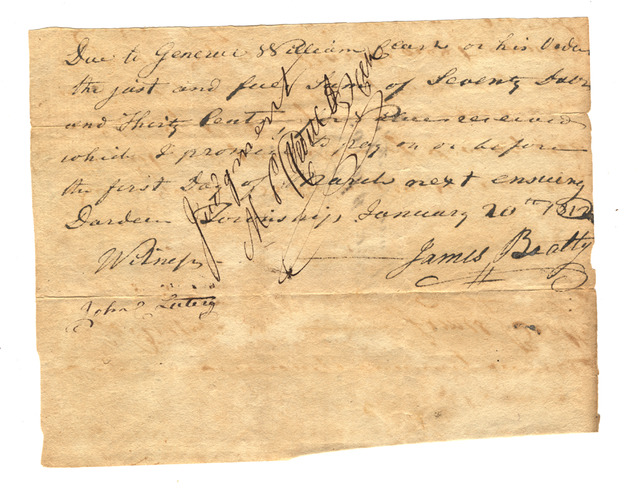 Due to General William Clark or his Order
the just and full Sum of Seventy Dolls
and Thirty Cents for Value received
which I promise to pay on or before
the first Day of March next ensuing
Dardeen Township January 20th 1812
James Beatty
Witness
John
Judgment